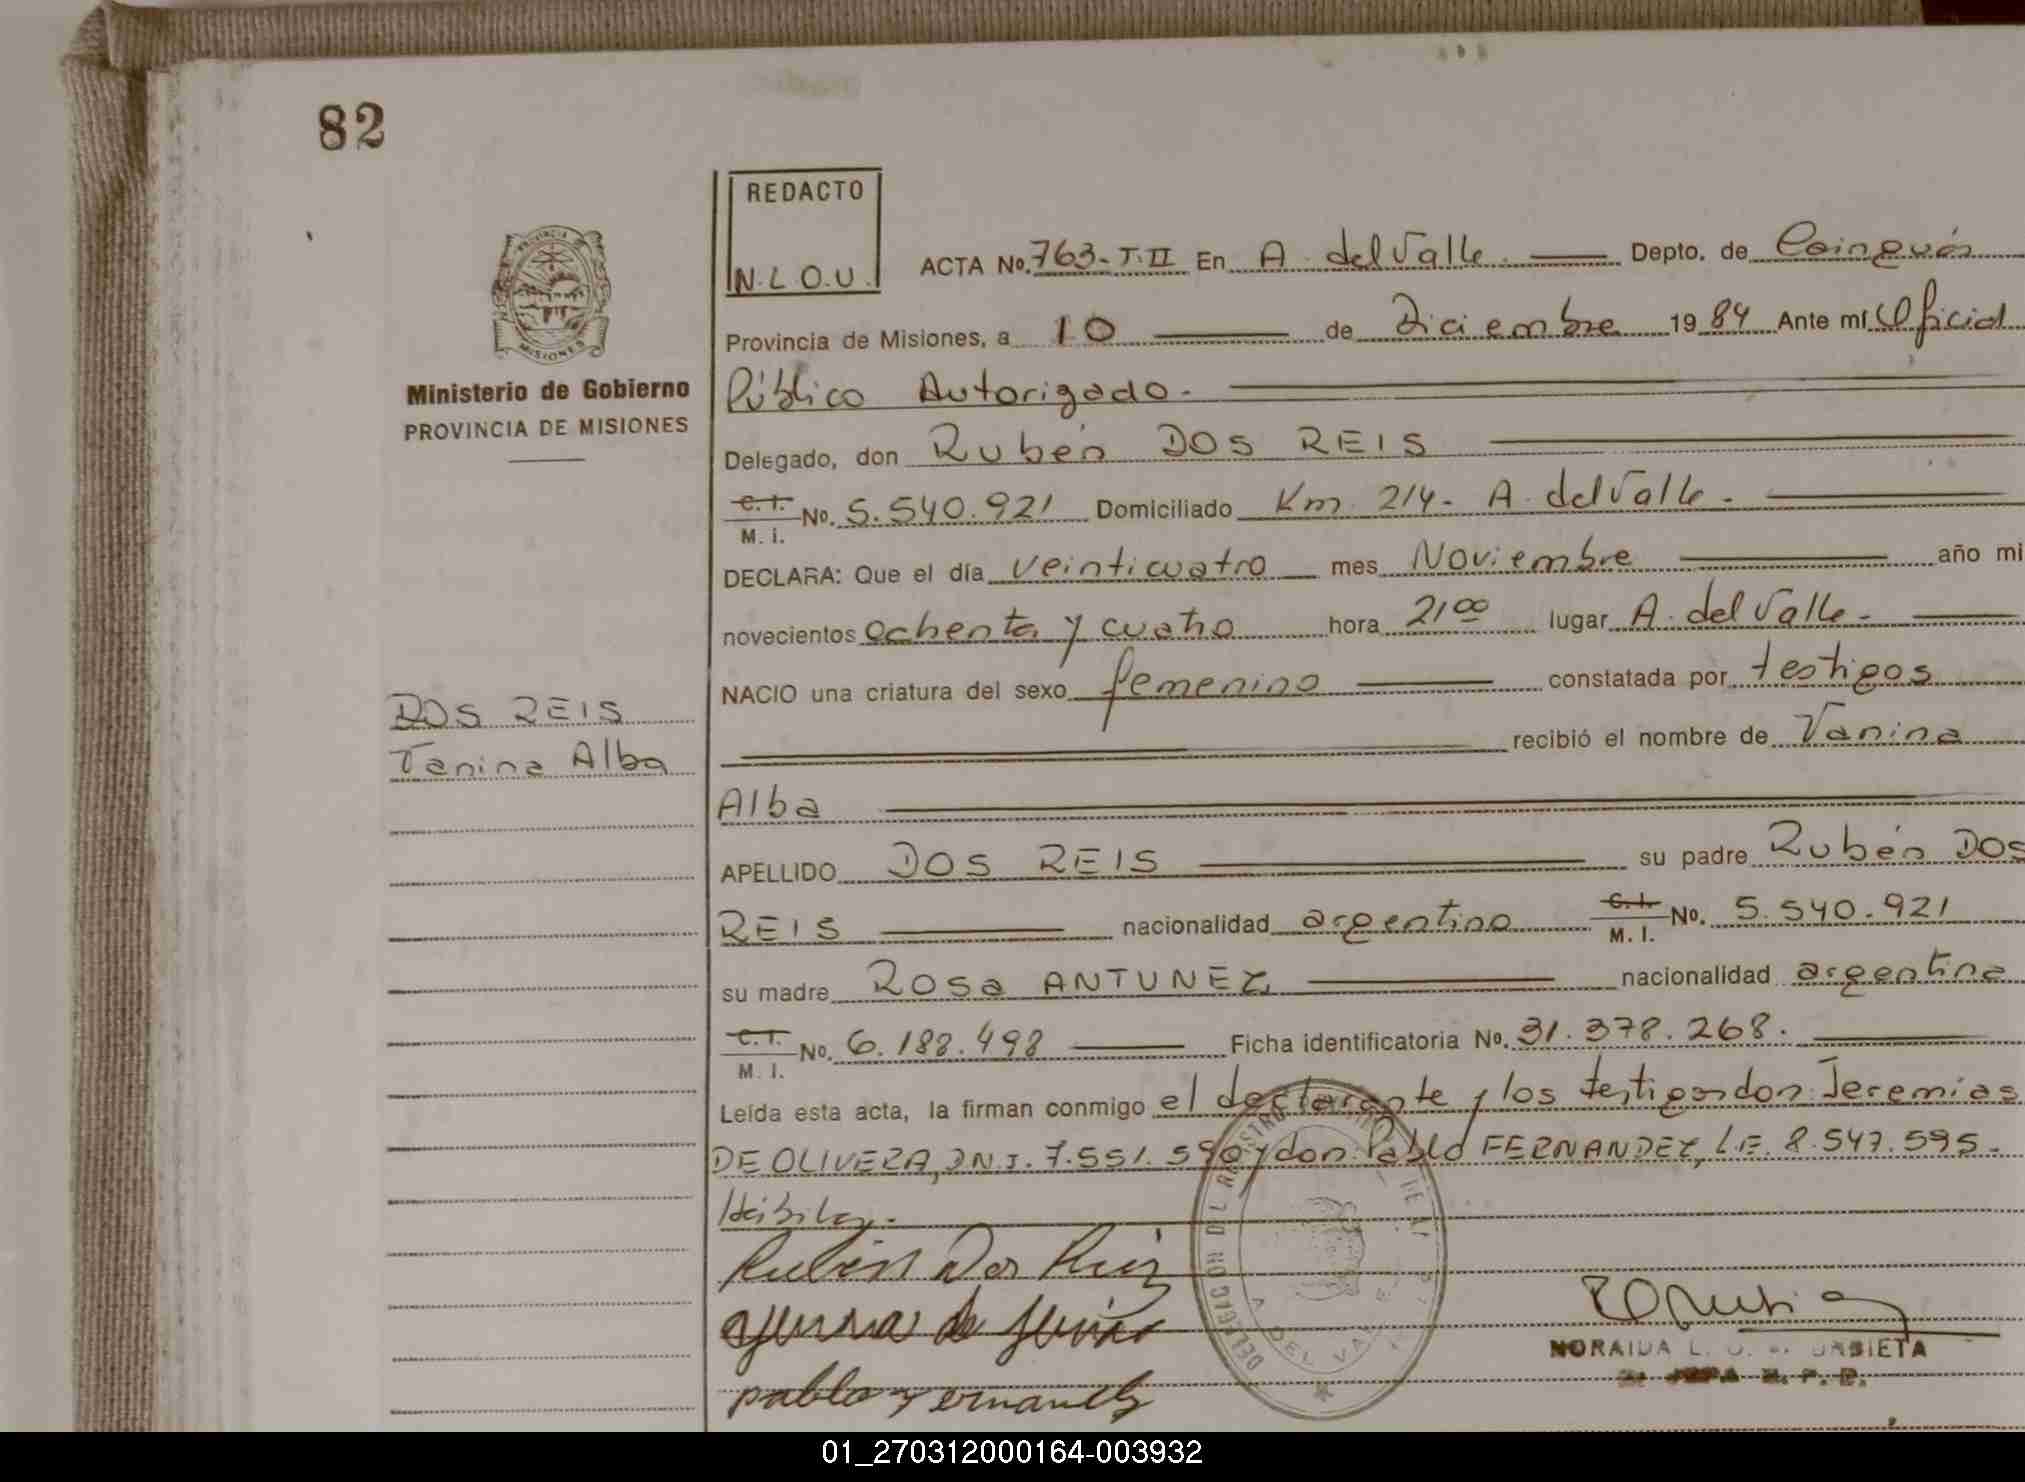 82
REDACTO
N.L.O.U.
ACTA No. 763-T.II En A. del Valle. Depto. de Cainguás
Provincia de Misiones, a 10 de Diciembre 1984 Ante mí Oficial
Público Autorizado.
Ministerio de Gobierno
PROVINCIA DE MISIONES
Delegado, don Rubén DOS REIS
C. I. M. I. No. 5.540.921 Domiciliado Km. 214- A. del Valle.
DECLARA: Que el día veinticuatro mes Noviembre año mi
novecientos ochenta y cuatro hora 21 00 lugar A. del Valle.
NACIO una criatura del sexo femenino constatada por testigos
DOS REIS
Vanina Alba
recibió el nombre de Vanina
Alba
APELLIDO DOS REIS su padre Rubén DOS
REIS nacionalidad argentino C. I. M. I. No. 5.540.921
su madre Rosa ANTUNEZ nacionalidad argentina
C. I. M. I. No. 6.188.498 Ficha identificatoria No. 31.378.268.
Leída esta acta, la firman conmigo el declarante y los testigos don Jeremias
DE OLIVERA, DNI. 7.551.590 y don Pablo FERNANDEZ, L.E. 8.547.595.
Hábiles.
Ruben Dos Reis
pablo Fernandez
A. DEL VALLE
NORAIDA L. URBIETA
01_270312000164-003932